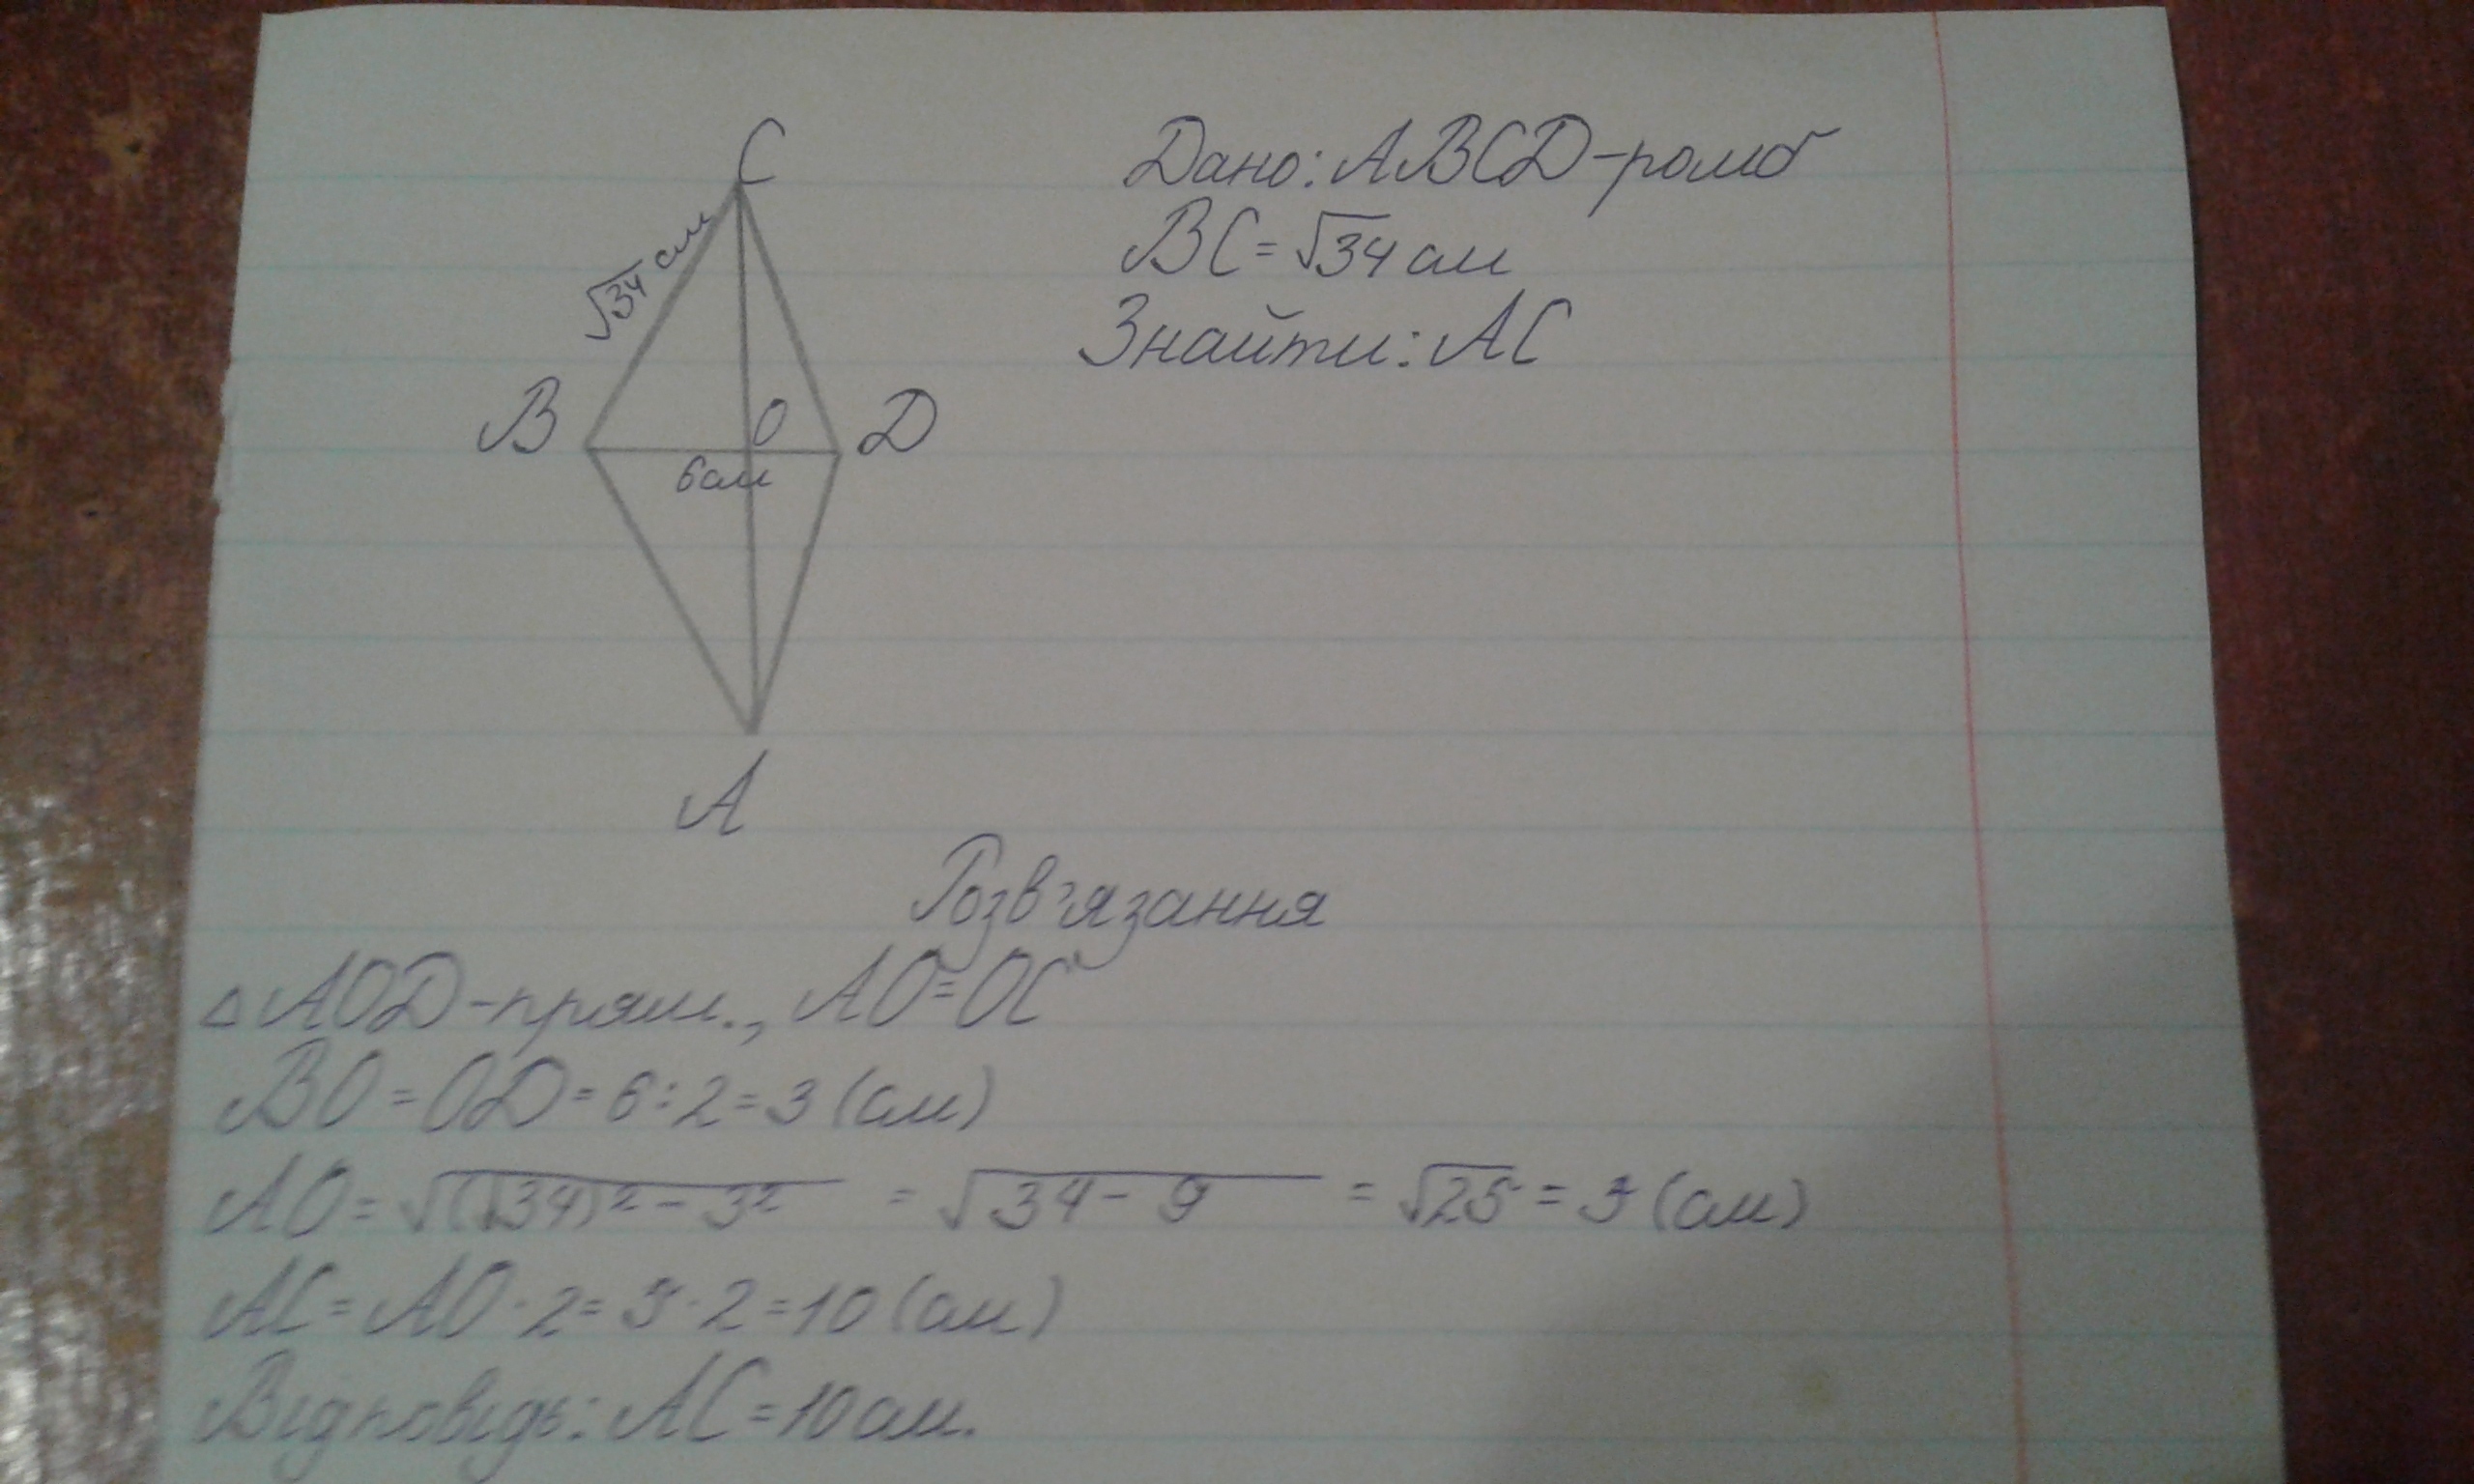 C
Дано: ABCD-ромб
√34 см
BC = √34 см
Знайти: AC
B
O
D
6см
A
Розв'язання
△AOD-прям., AO=OC
BO = OD = 6:2=3 (см)
AO = √((√34)² - 3²) = √(34 - 9) = √25 = 5 (см)
AC = AO · 2 = 5 · 2 = 10 (см)
Відповідь: AC = 10 см.